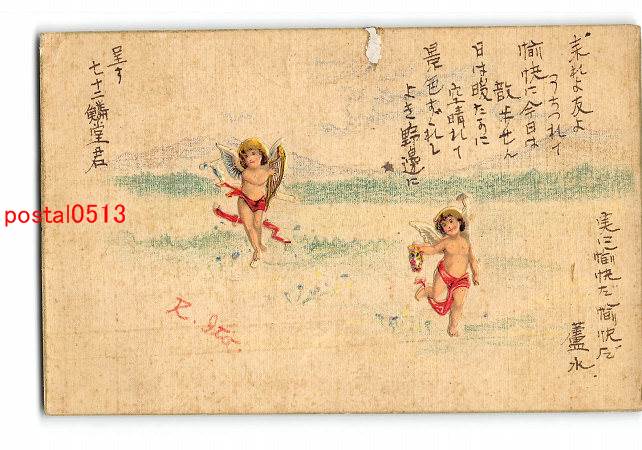 来れよ友よ
うちつれて
愉快に今日は
散歩せん
日は暖たかに
空晴れて
景色すぐれし
よき野邊に
呈す
七十二鱗堂君
実に愉快だ愉快だ
蘆水
R. Ito.
postal0513